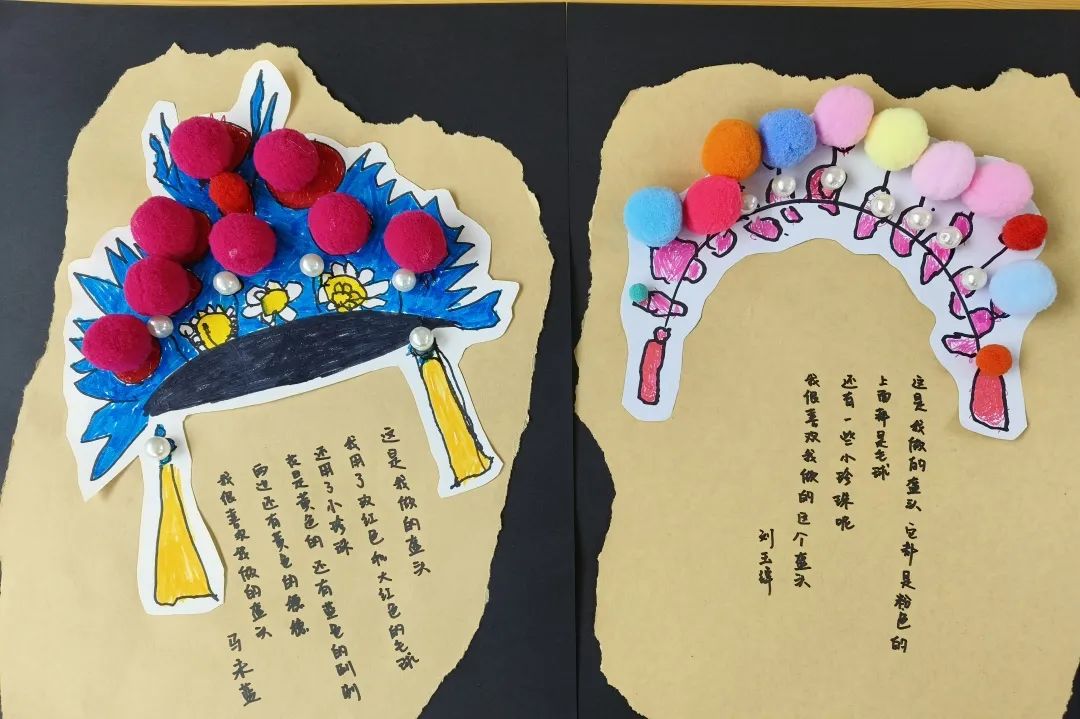 这是我做的盔头
我用了玫红色和大红色的毛球
还用了小珍珠
花是黄色的 还有蓝色的
两边还有黄色的
我很喜欢我做的盔头
马禾蓝
这是我做的盔头 它都是粉色的
上面都是毛球
还有一些小珍珠呢
我很喜欢我做的这个盔头
刘玉